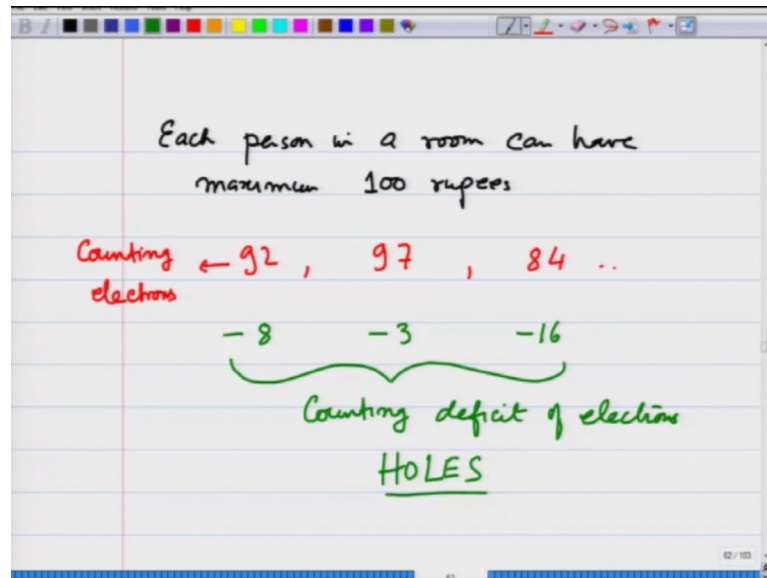 Each person in a room can have
maximum 100 rupees
Counting ← 92 , 97 , 84 ..
electrons
- 8 - 3 - 16
Counting deficit of electrons
HOLES
62 / 103